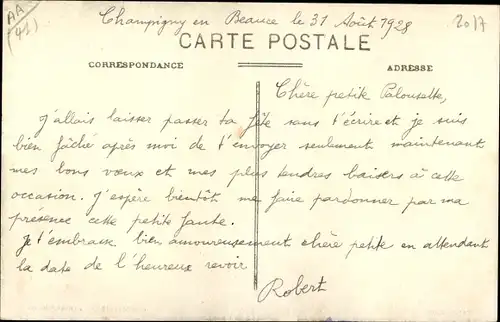 AA
(41)
Champigny en Beauce le 31 Août 1928
2017
CARTE POSTALE
CORRESPONDANCE
ADRESSE
Chère petite Palousette,
J'allais laisser passer ta fête sans t'écrire et je suis
bien fâché après moi de t'envoyer seulement maintenant
mes bons vœux et mes plus tendres baisers à cette
occasion. J'espère bientôt me faire pardonner par ma
présence cette petite faute.
Je t'embrasse bien amoureusement chère petite en attendant
la date de l'heureux revoir
Robert